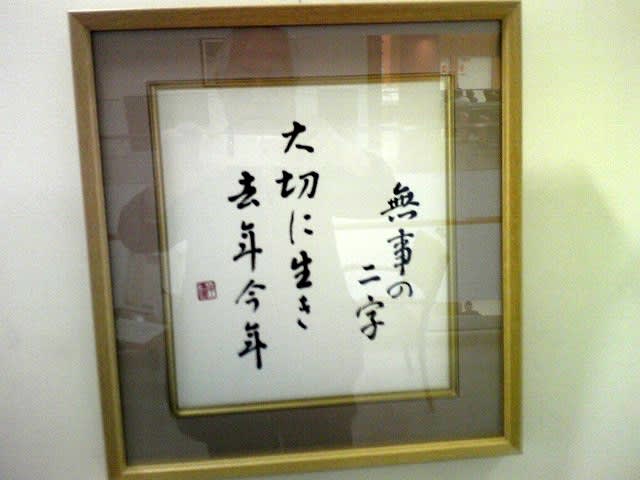 無事の
二字
大切に生き
去年今年